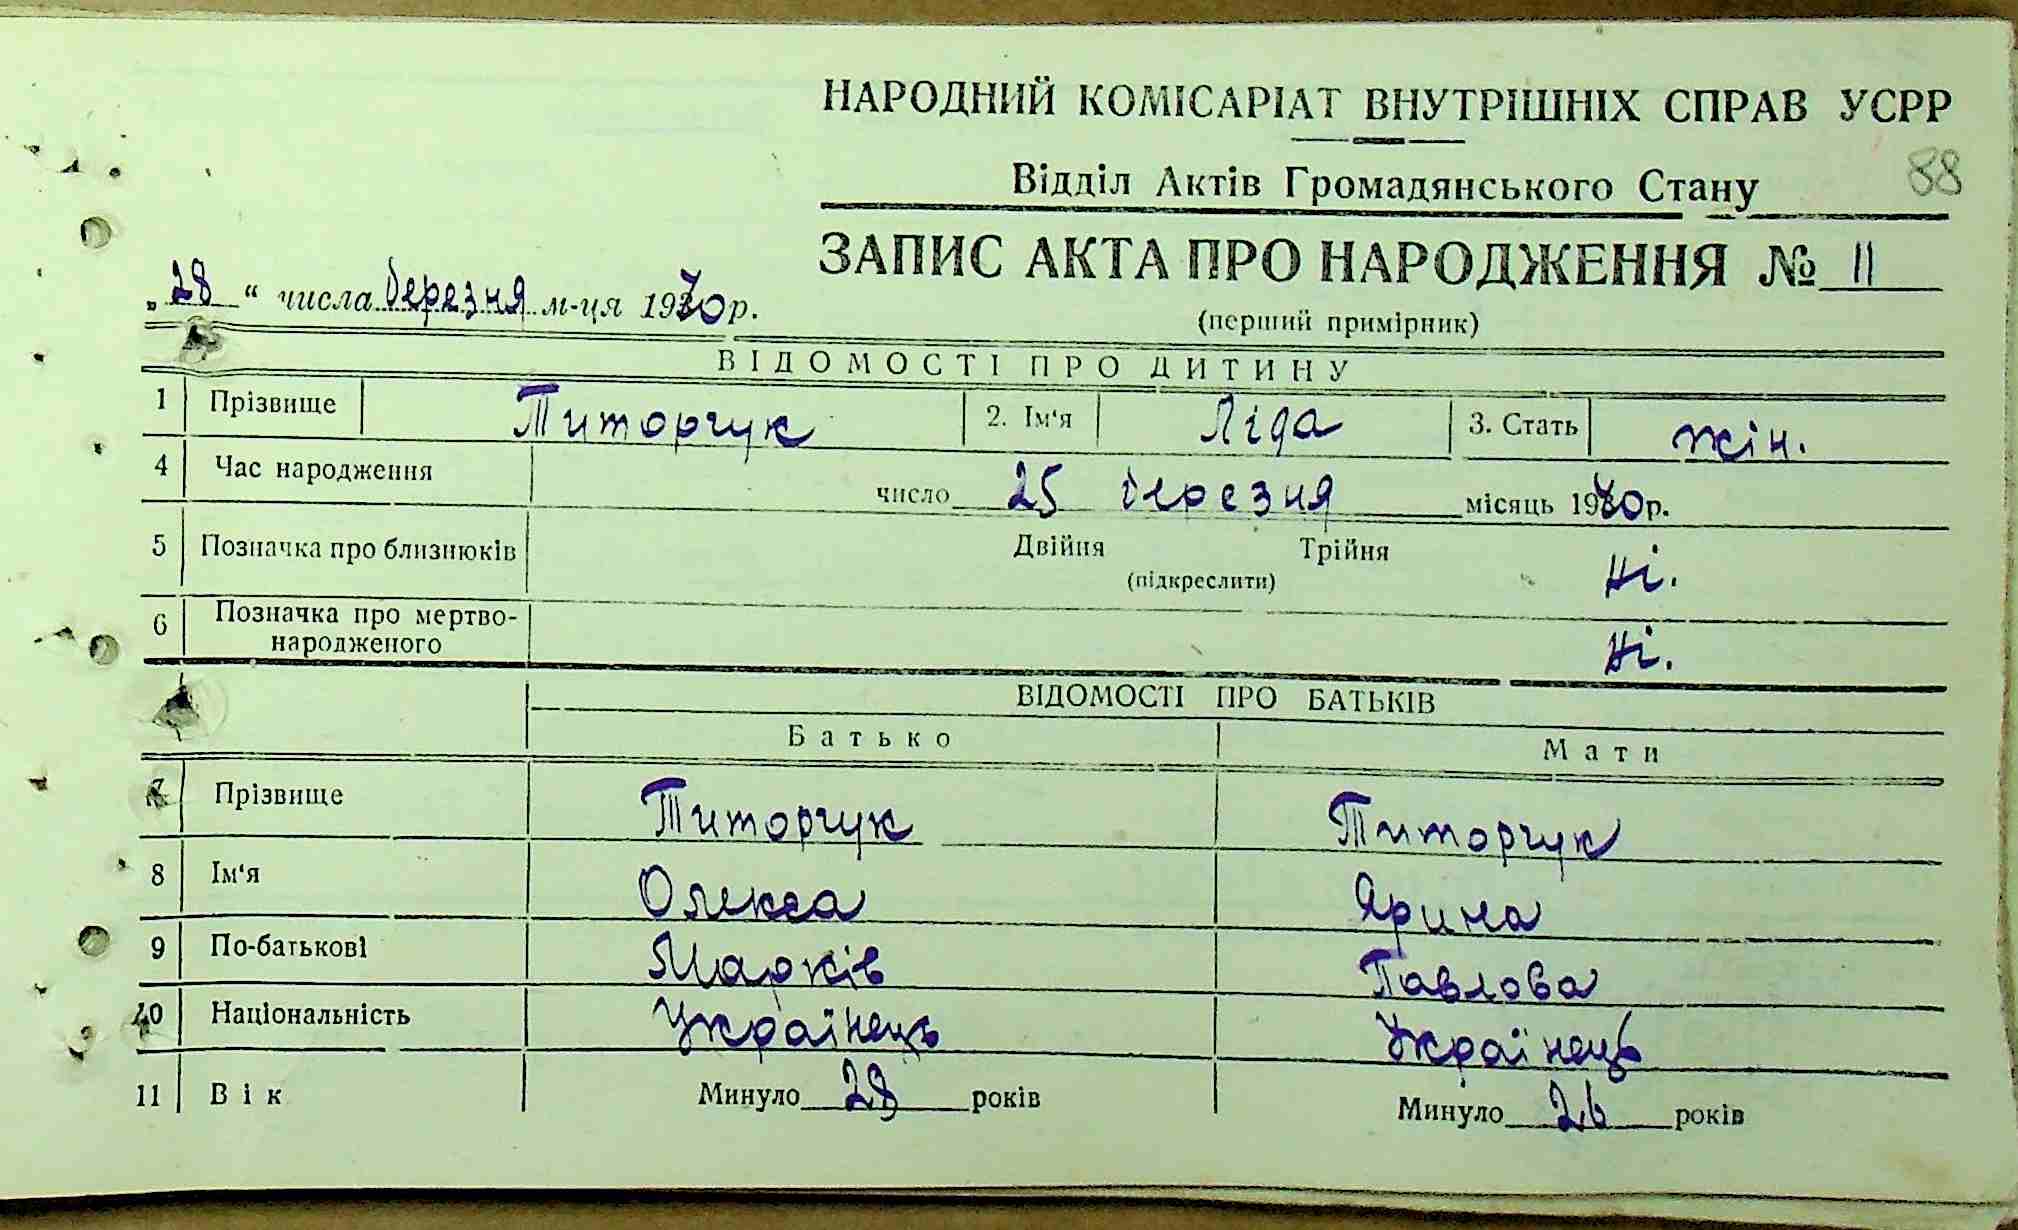 НАРОДНИЙ КОМІСАРІАТ ВНУТРІШНІХ СПРАВ УСРР
Відділ Актів Громадянського Стану 88
ЗАПИС АКТА ПРО НАРОДЖЕННЯ № 11
„28“ числа березня м-ця 1930 р.
(перший примірник)
ВІДОМОСТІ ПРО ДИТИНУ
1 Прізвище Титорчук 2. Ім'я Ліда 3. Стать жін.
4 Час народження число 25 березня місяць 1930 р.
5 Позначка про близнюків Двійня Трійня Ні.
(підкреслити)
6 Позначка про мертво-
народженого Ні.
ВІДОМОСТІ ПРО БАТЬКІВ
Батько Мати
7 Прізвище Титорчук Титорчук
8 Ім'я Олекса Ярина
9 По-батькові Марків Павлова
10 Національність Українець Українець
11 Вік Минуло 28 років Минуло 26 років